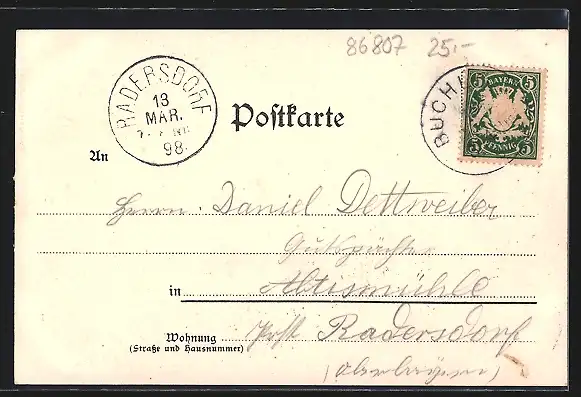 86807 25.-
RADERSDORF
13
MAR.
98.
Postkarte
BUCH
5 BAYERN 5
5 PFENNIG 5
An
Herrn Daniel Dettweiber
Gutspächter
in Abtismühle
Wohnung Post Radersdorf
(Straße und Hausnummer)
(Oberbayern)